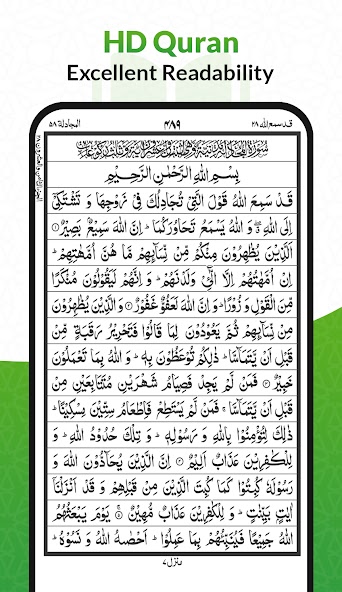 HD Quran
Excellent Readability
المجادلة ۵۸
۴۸۹
قد سمع الله ۲۸
بِسْمِ اللهِ الرَّحْمٰنِ الرَّحِيْمِ
قَدْ سَمِعَ اللهُ قَوْلَ الَّتِيْ تُجَادِلُكَ فِيْ زَوْجِهَا وَ تَشْتَكِيْۤ
اِلَى اللهِ ۖۗ وَ اللهُ يَسْمَعُ تَحَاوُرَكُمَا ؕ اِنَّ اللهَ سَمِيْعٌۢ بَصِيْرٌ ۝۱
اَلَّذِيْنَ يُظٰهِرُوْنَ مِنْكُمْ مِّنْ نِّسَآىِٕهِمْ مَّا هُنَّ اُمَّهٰتِهِمْ ؕ
اِنْ اُمَّهٰتُهُمْ اِلَّا الّٰٓـِٔيْ وَلَدْنَهُمْ ؕ وَ اِنَّهُمْ لَيَقُوْلُوْنَ مُنْكَرًا
مِّنَ الْقَوْلِ وَ زُوْرًا ؕ وَ اِنَّ اللهَ لَعَفُوٌّ غَفُوْرٌ ۝۲ وَ الَّذِيْنَ يُظٰهِرُوْنَ
مِنْ نِّسَآىِٕهِمْ ثُمَّ يَعُوْدُوْنَ لِمَا قَالُوْا فَتَحْرِيْرُ رَقَبَةٍ مِّنْ
قَبْلِ اَنْ يَّتَمَآسَّا ؕ ذٰلِكُمْ تُوْعَظُوْنَ بِهٖ ؕ وَ اللهُ بِمَا تَعْمَلُوْنَ
خَبِيْرٌ ۝۳ فَمَنْ لَّمْ يَجِدْ فَصِيَامُ شَهْرَيْنِ مُتَتَابِعَيْنِ مِنْ
قَبْلِ اَنْ يَّتَمَآسَّا ۚ فَمَنْ لَّمْ يَسْتَطِعْ فَاِطْعَامُ سِتِّيْنَ مِسْكِيْنًا ؕ
ذٰلِكَ لِتُؤْمِنُوْا بِاللهِ وَ رَسُوْلِهٖ ؕ وَ تِلْكَ حُدُوْدُ اللهِ ؕ وَ
لِلْكٰفِرِيْنَ عَذَابٌ اَلِيْمٌ ۝۴ اِنَّ الَّذِيْنَ يُحَآدُّوْنَ اللهَ وَ
رَسُوْلَهٗ كُبِتُوْا كَمَا كُبِتَ الَّذِيْنَ مِنْ قَبْلِهِمْ وَ قَدْ اَنْزَلْنَاۤ
اٰيٰتٍۭ بَيِّنٰتٍ ؕ وَ لِلْكٰفِرِيْنَ عَذَابٌ مُّهِيْنٌ ۝۵ يَوْمَ يَبْعَثُهُمُ
اللهُ جَمِيْعًا فَيُنَبِّئُهُمْ بِمَا عَمِلُوْا ؕ اَحْصٰىهُ اللهُ وَ نَسُوْهُ ؕ
منزل ۷